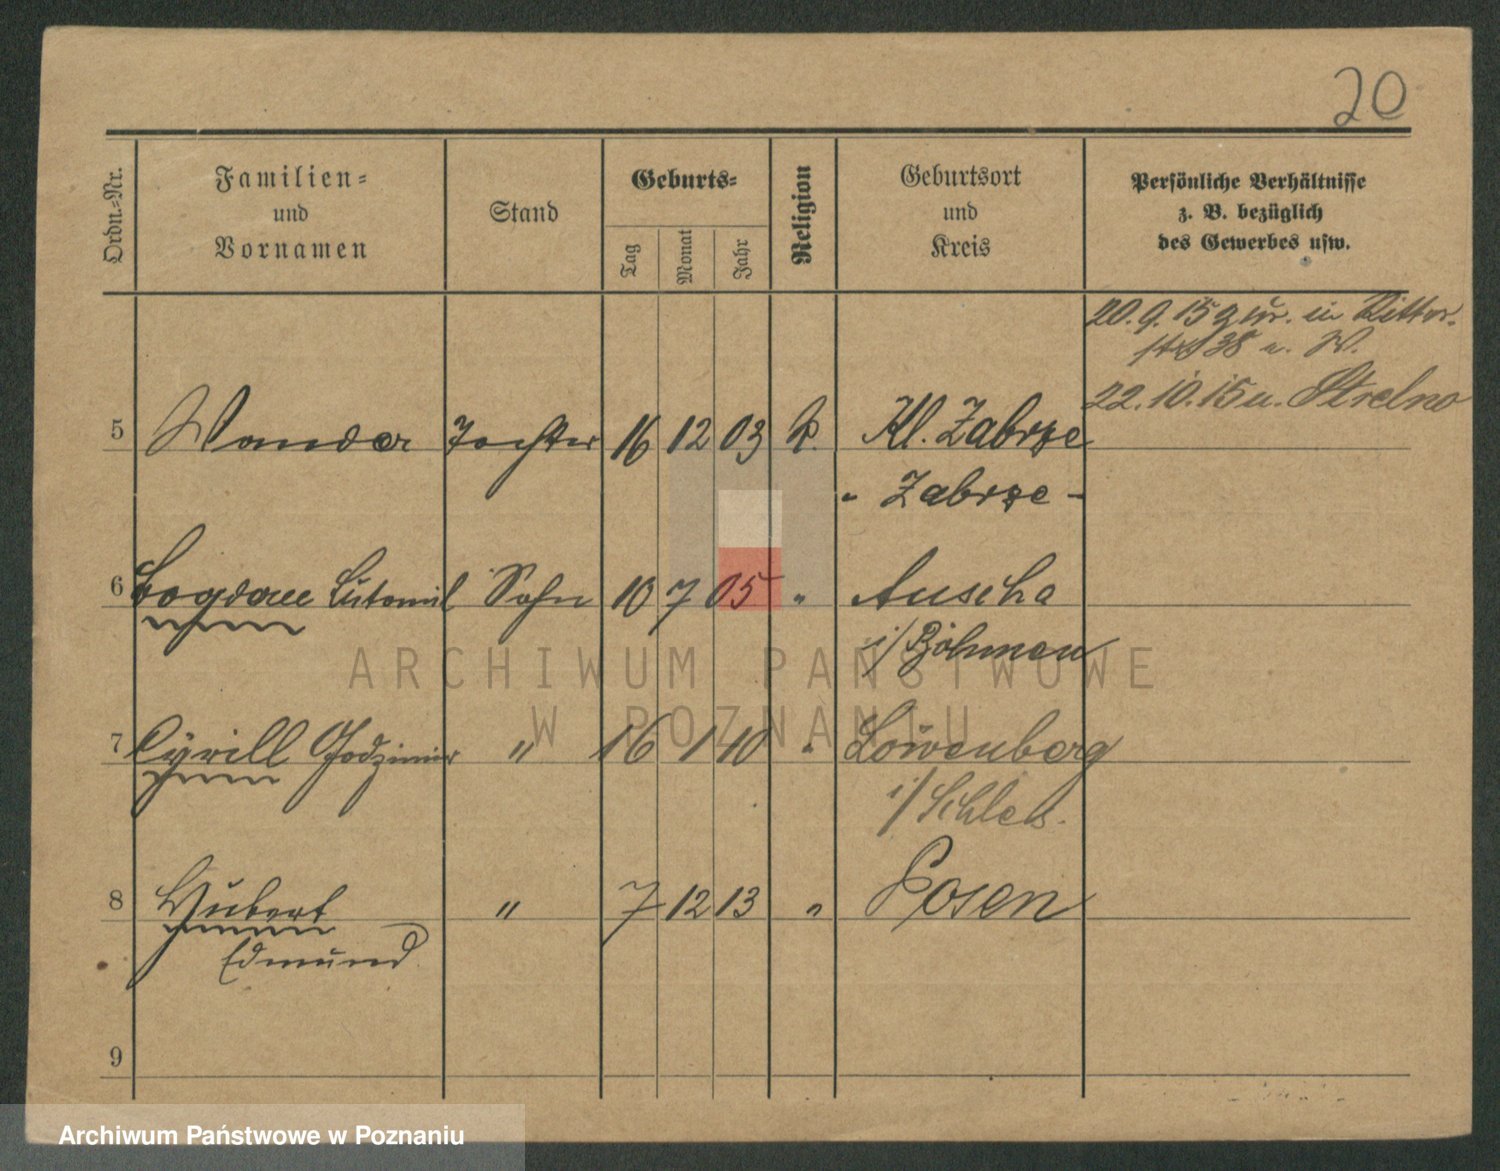 20
Ordn.-Nr.
Familien-
und
Vornamen
Stand
Geburts-
Tag
Monat
Jahr
Religion
Geburtsort
und
Kreis
Persönliche Verhältnisse
z. B. bezüglich
des Gewerbes usw.
20.9.15 zur. in Ritter-
str 38 u. W.
22.10.15 u. Strelno
5 Wanda Tochter 16 12 03 k. Kl. Zabrze
- Zabrze -
6 Bogdan Lutomil Sohn 10 7 05 " Auscha
i/Böhmen
7 Cyrill Godzimir " 16 1 10 " Löwenberg
i/Schles.
8 Hubert " 7 12 13 " Posen
Edmund
9
ARCHIWUM PAŃSTWOWE
W POZNANIU
Archiwum Państwowe w Poznaniu